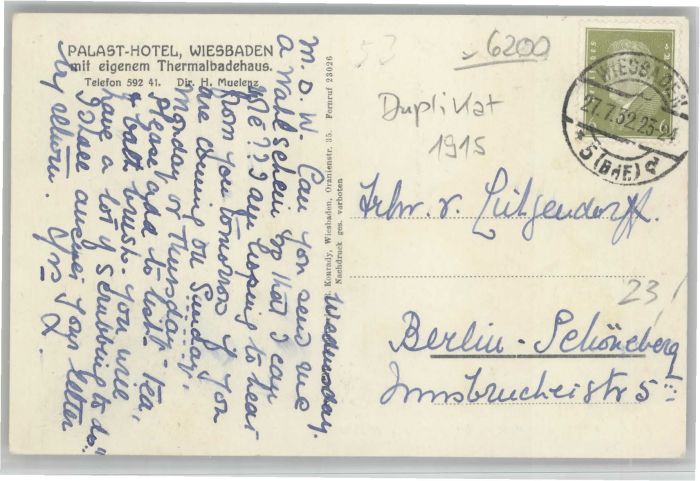 PALAST-HOTEL, WIESBADEN
mit eigenem Thermalbadehaus.
Telefon 592 41. Dir. H. Muelenz
Wednesday.
M. D. W. Can you send me
a Wahlschein so that I can
?? I am hoping to hear
from you tomorrow if you
are coming on Sunday,
Monday or Thursday.
Please add to list - tea,
& bath brush. You will
have a lot of scrubbing to do
my return. Yrs L.
Konrady, Wiesbaden, Oranienstr. 35. Fernruf 23026
Nachdruck ges. verboten
53
6200
Duplikat
1915
WIESBADEN
27.7.32.23-24
* 5 (BHF.) d
Frhr. v. Lütgendorff.
23
Berlin-Schöneberg
Innsbruckerstr 5